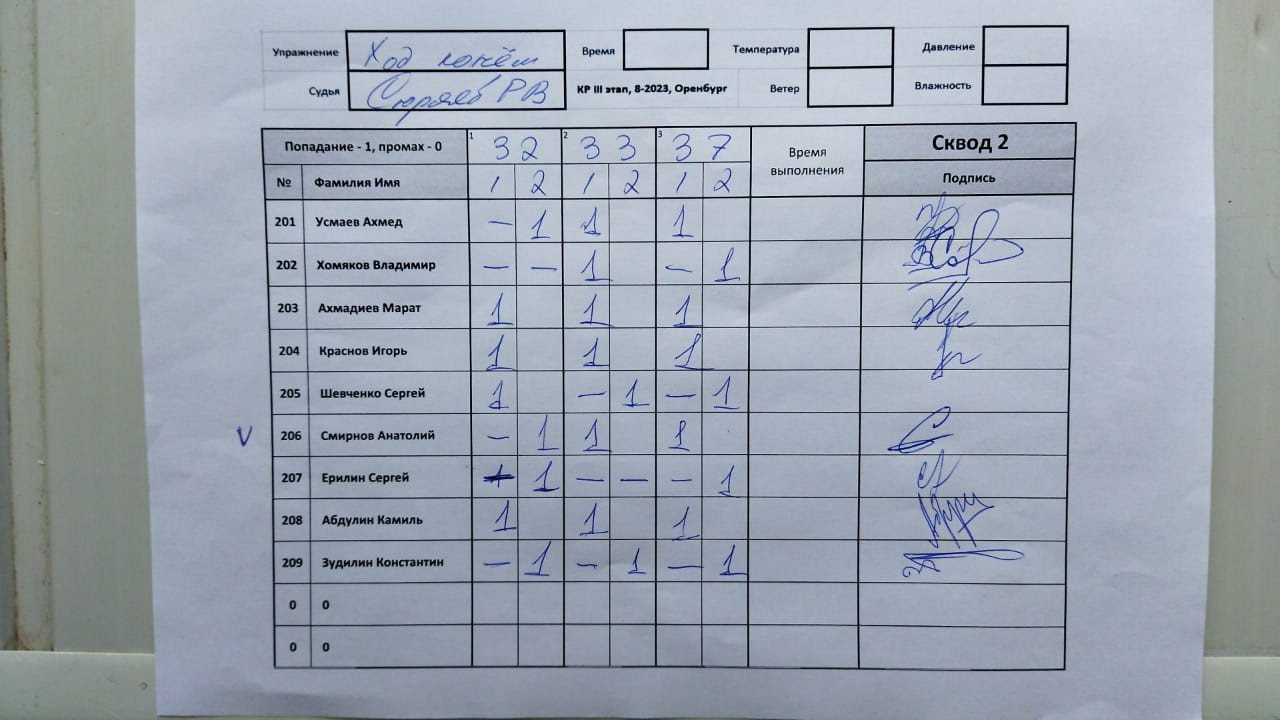 Упражнение Ход конём Время Температура Давление
Судья РВ КР III этап, 8-2023, Оренбург Ветер Влажность
Попадание - 1, промах - 0 1 32 2 33 3 37 Время выполнения Сквод 2
№ Фамилия Имя 1 2 1 2 1 2 Подпись
201 Усмаев Ахмед – 1 1 1
202 Хомяков Владимир – – 1 – 1
203 Ахмадиев Марат 1 1 1
204 Краснов Игорь 1 1 1
205 Шевченко Сергей 1 – 1 – 1
V 206 Смирнов Анатолий – 1 1 1
207 Ерилин Сергей – 1 – – – 1
208 Абдулин Камиль 1 1 1
209 Зудилин Константин – 1 – 1 – 1
0 0
0 0